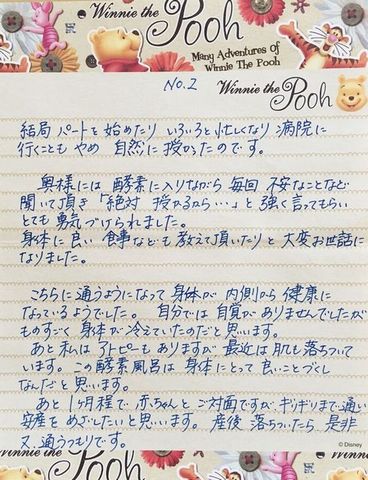 Winnie the Pooh
Many Adventures of
Winnie The Pooh
No.2
Winnie the Pooh
結局 パートを始めたり いろいろと忙しくなり 病院に
行くこともやめ 自然に授かったのです。
奥様には 酵素に入りながら 毎回 不安なことなど
聞いて頂き「絶対 授かるから…」と強く言ってもらい
とても 勇気づけられました。
身体に良い 食事なども教えて頂いたりと大変お世話に
なりました。
こちらに通うようになって身体が内側から健康に
なっているようでした。自分では自覚がありませんでしたが
ものすごく身体が冷えていたのだと思います。
あと私はアトピーもありますが最近は肌も落ちついて
います。この酵素風呂は身体にとって良いことづくし
なんだと思います。
あと1ヶ月程で赤ちゃんとご対面ですが、ギリギリまで通い
安産をめざしたいと思います。産後落ちついたら、是非
又、通うつもりです。
© Disney
Winnie the Pooh